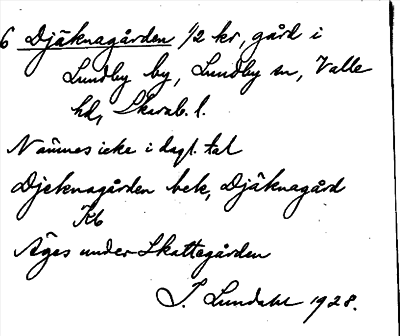 6 Djäknagården 1/2 kr, gård i
Lundby by, Lundby sn, Valle
hd, Skarab. l.
Namnes icke i dagl. tal
Djeknagården bek, Djäknagård
Kb
Äges under Skattegården
I. Lundahl 1928.